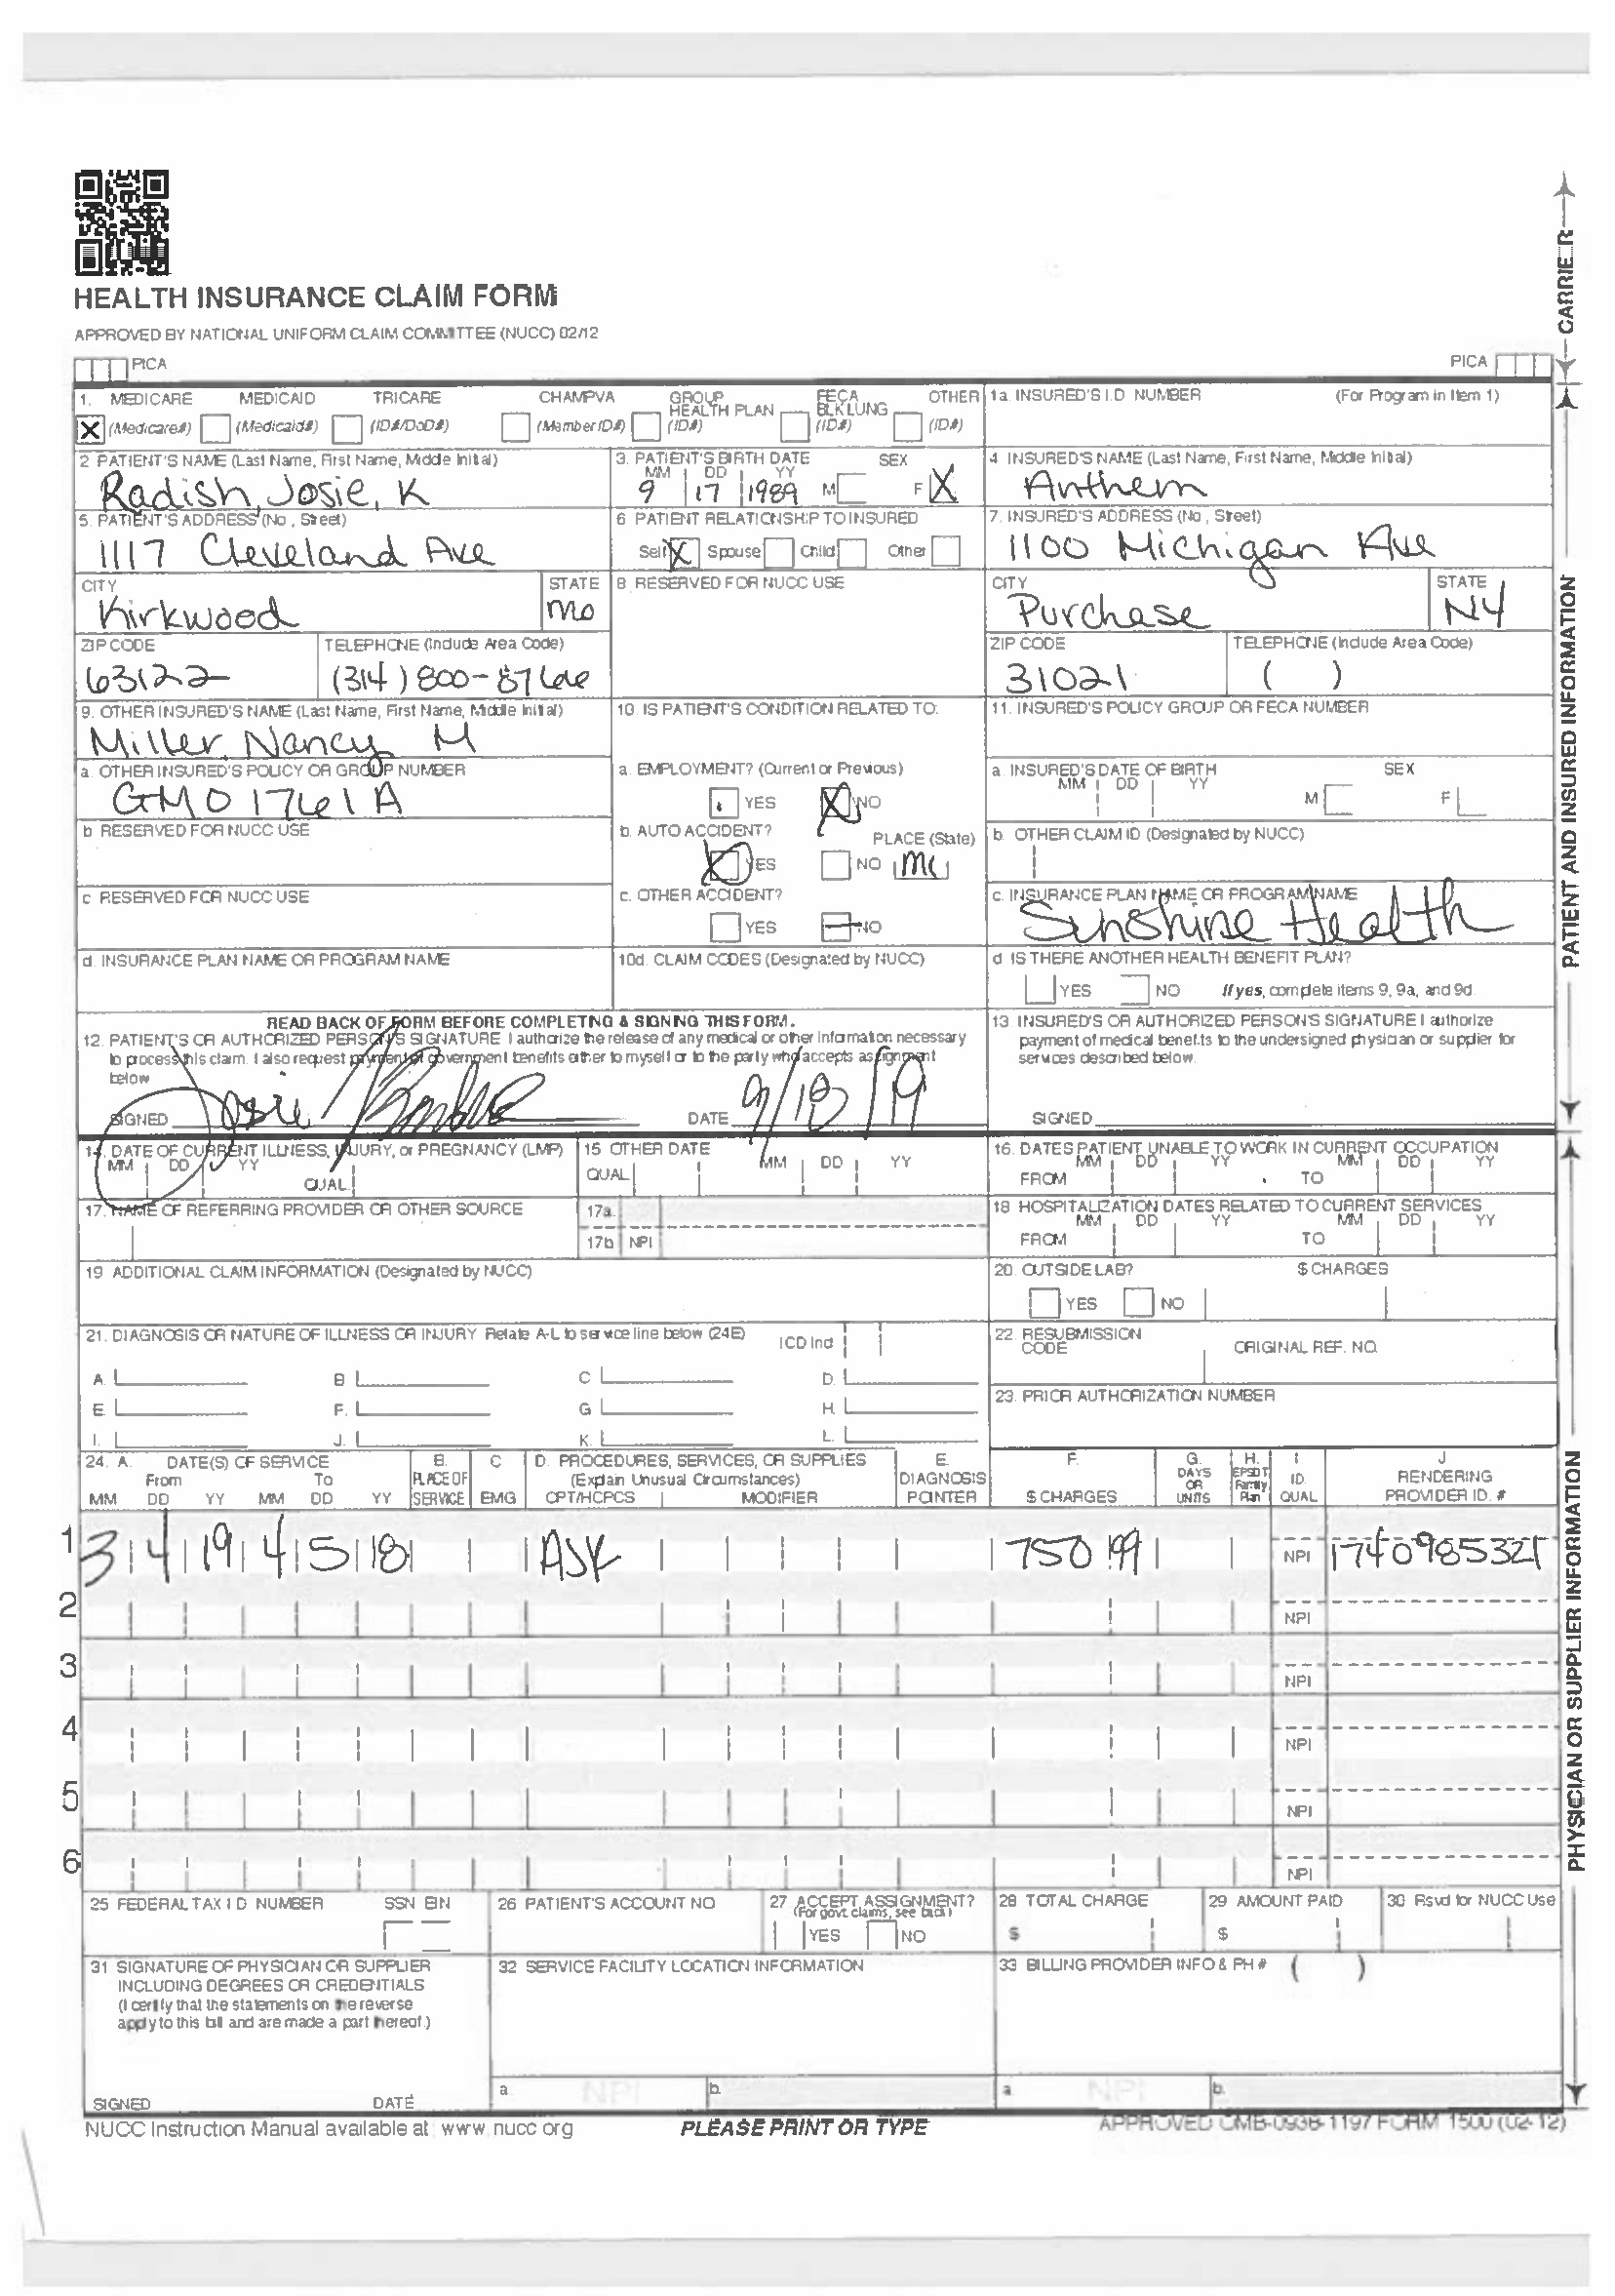 HEALTH INSURANCE CLAIM FORM
APPROVED BY NATIONAL UNIFORM CLAIM COMMITTEE (NUCC) 02/12
PICA
PICA
CARRIER
1. MEDICARE MEDICAID TRICARE CHAMPVA GROUP HEALTH PLAN FECA BLK LUNG OTHER
X (Medicare#) (Medicaid#) (ID#/DoD#) (Member ID#) (ID#) (ID#) (ID#)
1a. INSURED'S I.D. NUMBER (For Program in Item 1)
2. PATIENT'S NAME (Last Name, First Name, Middle Initial)
Radish, Josie, K
3. PATIENT'S BIRTH DATE SEX
MM DD YY
9 17 1989 M F X
4. INSURED'S NAME (Last Name, First Name, Middle Initial)
Anthem
5. PATIENT'S ADDRESS (No., Street)
1117 Cleveland Ave
6. PATIENT RELATIONSHIP TO INSURED
Self X Spouse Child Other
7. INSURED'S ADDRESS (No., Street)
1100 Michigan Ave
CITY STATE
Kirkwood Mo
8. RESERVED FOR NUCC USE
CITY STATE
Purchase NY
ZIP CODE TELEPHONE (Include Area Code)
63122 (314) 800-8766
ZIP CODE TELEPHONE (Include Area Code)
31021 ( )
9. OTHER INSURED'S NAME (Last Name, First Name, Middle Initial)
Miller, Nancy M
10. IS PATIENT'S CONDITION RELATED TO:
11. INSURED'S POLICY GROUP OR FECA NUMBER
a. OTHER INSURED'S POLICY OR GROUP NUMBER
GMO1761A
a. EMPLOYMENT? (Current or Previous)
YES X NO
a. INSURED'S DATE OF BIRTH SEX
MM DD YY M F
b. RESERVED FOR NUCC USE
b. AUTO ACCIDENT? PLACE (State)
X YES NO MO
b. OTHER CLAIM ID (Designated by NUCC)
c. RESERVED FOR NUCC USE
c. OTHER ACCIDENT?
YES NO
c. INSURANCE PLAN NAME OR PROGRAM NAME
Sunshine Health
d. INSURANCE PLAN NAME OR PROGRAM NAME
10d. CLAIM CODES (Designated by NUCC)
d. IS THERE ANOTHER HEALTH BENEFIT PLAN?
YES NO If yes, complete items 9, 9a, and 9d.
PATIENT AND INSURED INFORMATION
READ BACK OF FORM BEFORE COMPLETING & SIGNING THIS FORM.
12. PATIENT'S OR AUTHORIZED PERSON'S SIGNATURE I authorize the release of any medical or other information necessary
to process this claim. I also request payment of government benefits either to myself or to the party who accepts assignment
below.
SIGNED Josie DATE 9/18/19
13. INSURED'S OR AUTHORIZED PERSON'S SIGNATURE I authorize
payment of medical benefits to the undersigned physician or supplier for
services described below.
SIGNED
14. DATE OF CURRENT ILLNESS, INJURY, or PREGNANCY (LMP)
MM DD YY QUAL.
15. OTHER DATE
QUAL. MM DD YY
16. DATES PATIENT UNABLE TO WORK IN CURRENT OCCUPATION
MM DD YY MM DD YY
FROM TO
17. NAME OF REFERRING PROVIDER OR OTHER SOURCE
17a.
17b. NPI
18. HOSPITALIZATION DATES RELATED TO CURRENT SERVICES
MM DD YY MM DD YY
FROM TO
19. ADDITIONAL CLAIM INFORMATION (Designated by NUCC)
20. OUTSIDE LAB? $ CHARGES
YES NO
21. DIAGNOSIS OR NATURE OF ILLNESS OR INJURY Relate A-L to service line below (24E) ICD Ind.
A. B. C. D.
E. F. G. H.
I. J. K. L.
22. RESUBMISSION CODE ORIGINAL REF. NO.
23. PRIOR AUTHORIZATION NUMBER
24. A. DATE(S) OF SERVICE B. C. D. PROCEDURES, SERVICES, OR SUPPLIES E. F. G. H. I. J.
From To PLACE OF (Explain Unusual Circumstances) DIAGNOSIS DAYS OR EPSDT Family ID. RENDERING
MM DD YY MM DD YY SERVICE EMG CPT/HCPCS MODIFIER POINTER $ CHARGES UNITS Plan QUAL. PROVIDER ID. #
1 3 4 19 4 5 18 ASK 750 99 NPI 1740985321
2 NPI
3 NPI
4 NPI
5 NPI
6 NPI
25. FEDERAL TAX I.D. NUMBER SSN EIN
26. PATIENT'S ACCOUNT NO.
27. ACCEPT ASSIGNMENT?
(For govt. claims, see back)
YES NO
28. TOTAL CHARGE
$
29. AMOUNT PAID
$
30. Rsvd for NUCC Use
31. SIGNATURE OF PHYSICIAN OR SUPPLIER
INCLUDING DEGREES OR CREDENTIALS
(I certify that the statements on the reverse
apply to this bill and are made a part thereof.)
SIGNED DATE
32. SERVICE FACILITY LOCATION INFORMATION
a. NPI b.
33. BILLING PROVIDER INFO & PH # ( )
a. NPI b.
PHYSICIAN OR SUPPLIER INFORMATION
NUCC Instruction Manual available at: www.nucc.org
PLEASE PRINT OR TYPE
APPROVED OMB-0938-1197 FORM 1500 (02-12)